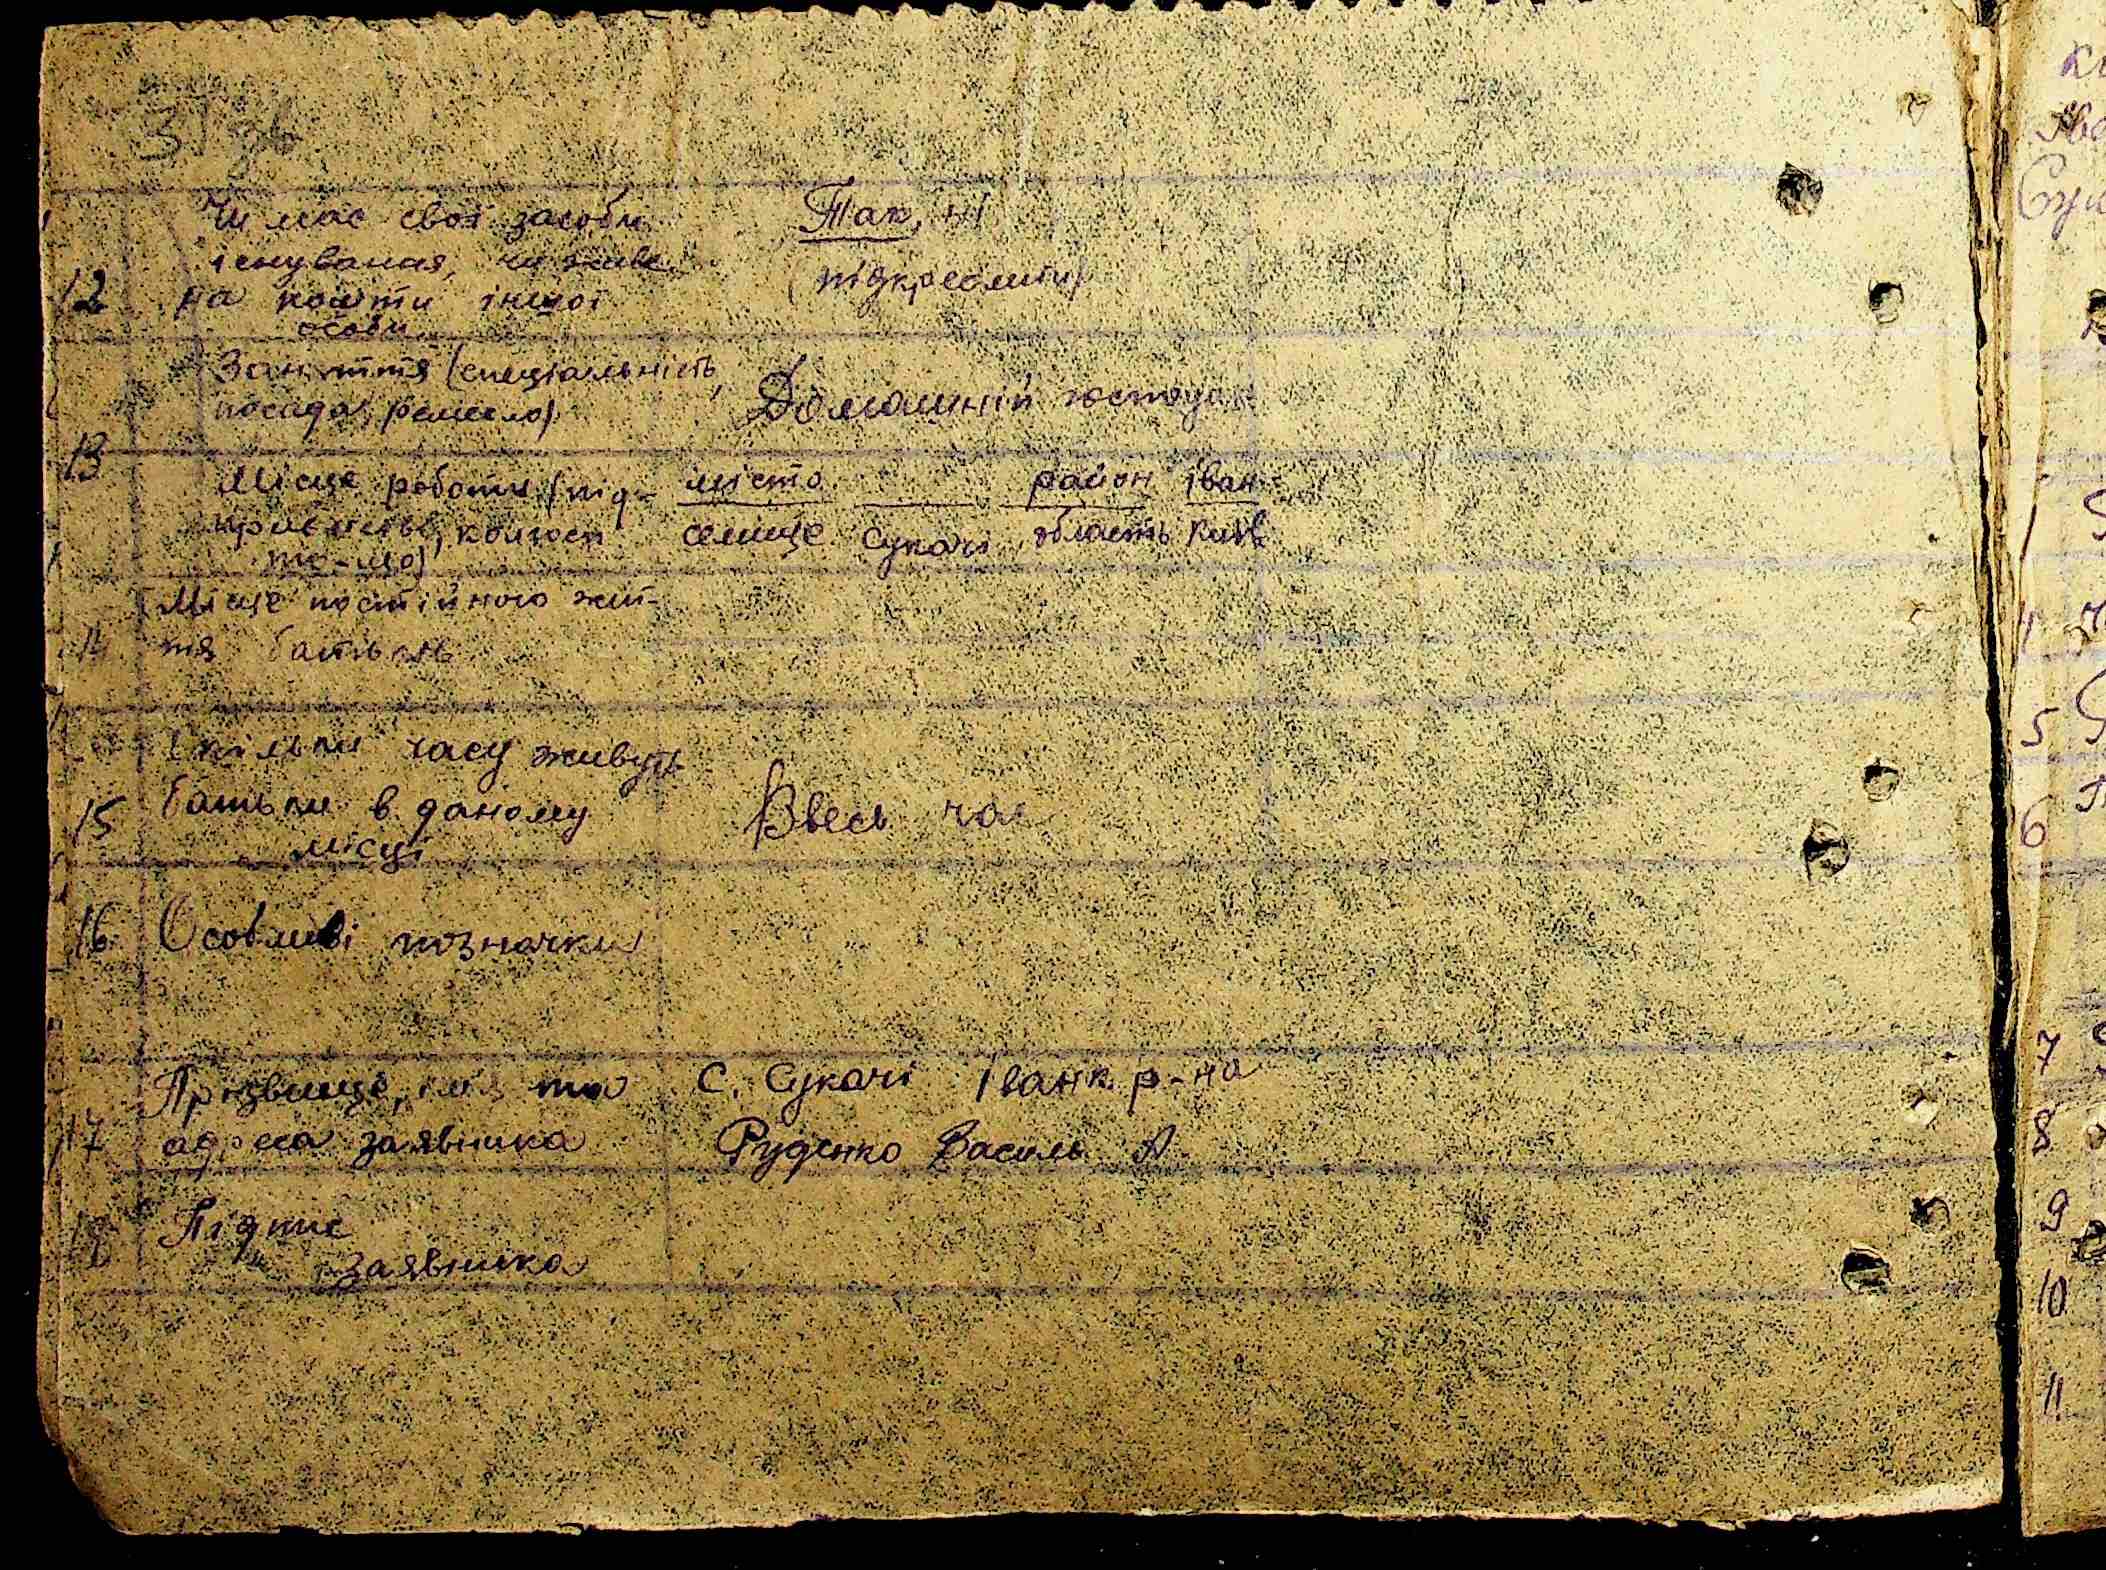 12 Чи має свої засоби
існування, чи живе
на кошти іншої
особи
Так, ні
(підкреслити)
13 Заняття (спеціальність,
посада, ремесло)
Домашній господар
Місце роботи (під-
приємство, колгосп
то-що)
місто район Іван
селище Сукачі область Київ
14 Місце постійного жит-
тя батьків
15 Скільки часу живуть
батьки в даному
місці
Ввесь час
16 Особливі позначки
17 Прізвище, ім'я та
адреса заявника
С. Сукачі Іванк. р-на
Руденко Василь А
18 Підпис
заявника
1
4
5
6
7
8
9
10
11